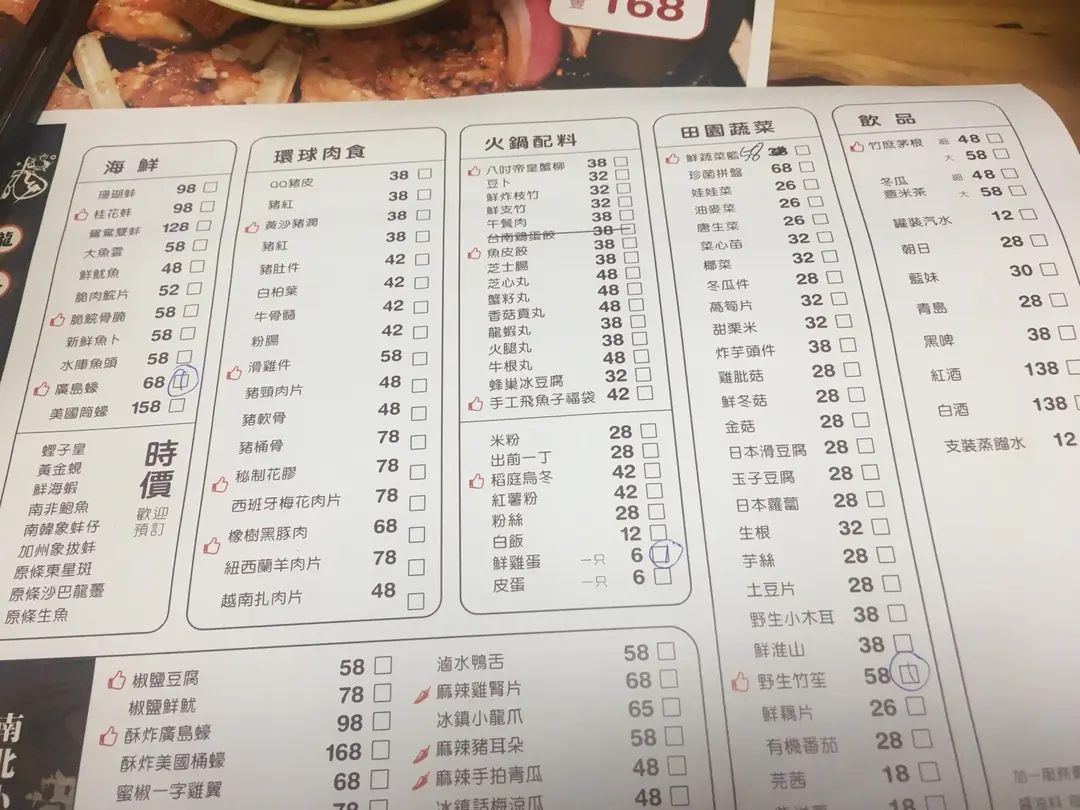 168
海鮮
珊瑚蚌 98
桂花蚌 98
鴛鴦雙蚌 128
大魚雲 58
鮮魷魚 48
脆肉鯇片 52
脆鯇骨腩 58
新鮮魚卜 58
水庫魚頭 58
廣島蠔 68
美國筒蠔 158
蟶子皇
黃金蜆
鮮海蝦
南非鮑魚
南韓象蚌仔
加州象拔蚌
原條東星斑
原條沙巴龍躉
原條生魚
時價
歡迎
預訂
環球肉食
QQ豬皮 38
豬紅 38
黃沙豬潤 38
豬紅 38
豬肚件 42
白柏葉 42
牛骨髓 42
粉腸 42
滑雞件 58
豬頸肉片 48
豬軟骨 48
豬桶骨 78
秘制花膠 78
西班牙梅花肉片 78
橡樹黑豚肉 68
紐西蘭羊肉片 78
越南扎肉片 48
火鍋配料
八吋帝皇蟹柳 38
豆卜 32
鮮炸枝竹 32
鮮支竹 32
午餐肉 38
台南鷄蛋餃 38
魚皮餃 38
芝士腸 38
芝心丸 48
蟹籽丸 48
香菇貢丸 48
龍蝦丸 38
火腿丸 38
牛根丸 48
蜂巢冰豆腐 32
手工飛魚子福袋 42
米粉 28
出前一丁 28
稻庭烏冬 42
紅薯粉 42
粉絲 28
白飯 12
鮮雞蛋 一只 6
皮蛋 一只 6
田園蔬菜
鮮蔬菜籃 58
珍菌拼盤 68
娃娃菜 26
油麥菜 26
唐生菜 26
菜心苗 32
椰菜 32
冬瓜件 28
萵筍片 32
甜栗米 32
炸芋頭件 38
雞肶菇 28
鮮冬菇 28
金菇 28
日本滑豆腐 28
玉子豆腐 28
日本蘿蔔 28
生根 32
芋絲 28
土豆片 28
野生小木耳 38
鮮淮山 38
野生竹笙 58
鮮藕片 26
有機番茄 28
芫茜 18
18
飲品
竹蔗茅根 細 48
大 58
冬瓜
薏米茶 細 48
大 58
罐裝汽水 12
朝日 28
藍妹 30
青島 28
黑啤 38
紅酒 138
白酒 138
支裝蒸餾水 12
椒鹽豆腐 58
椒鹽鮮魷 78
酥炸廣島蠔 98
酥炸美國桶蠔 168
蜜椒一字雞翼 68
78
滷水鴨舌 58
麻辣雞腎片 68
冰鎮小龍爪 65
麻辣豬耳朵 58
麻辣手拍青瓜 48
冰鎮話梅涼瓜 48
加一服務
南北小
龍